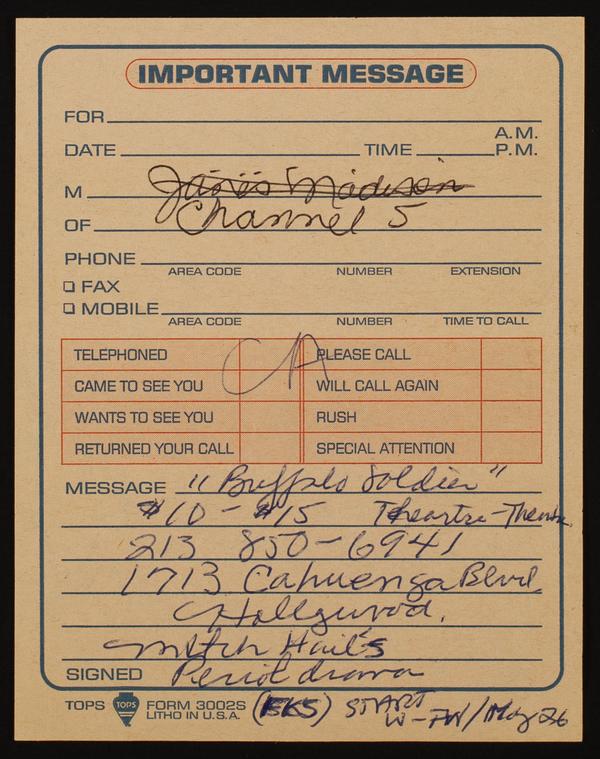 IMPORTANT MESSAGE
FOR
A.M.
DATE TIME P.M.
M James Madison
OF Channel 5
PHONE
AREA CODE NUMBER EXTENSION
FAX
MOBILE
AREA CODE NUMBER TIME TO CALL
TELEPHONED PLEASE CALL
CAME TO SEE YOU WILL CALL AGAIN
WANTS TO SEE YOU RUSH
RETURNED YOUR CALL SPECIAL ATTENTION
MESSAGE "Buffalo Soldier"
$10 - $15 Theartre-Theatre
213 850-6941
1713 Cahuenga Blvd.
Hollywood.
Mitch Hail's
SIGNED Period drama
TOPS TOPS FORM 3002S
LITHO IN U.S.A. START
/May 26